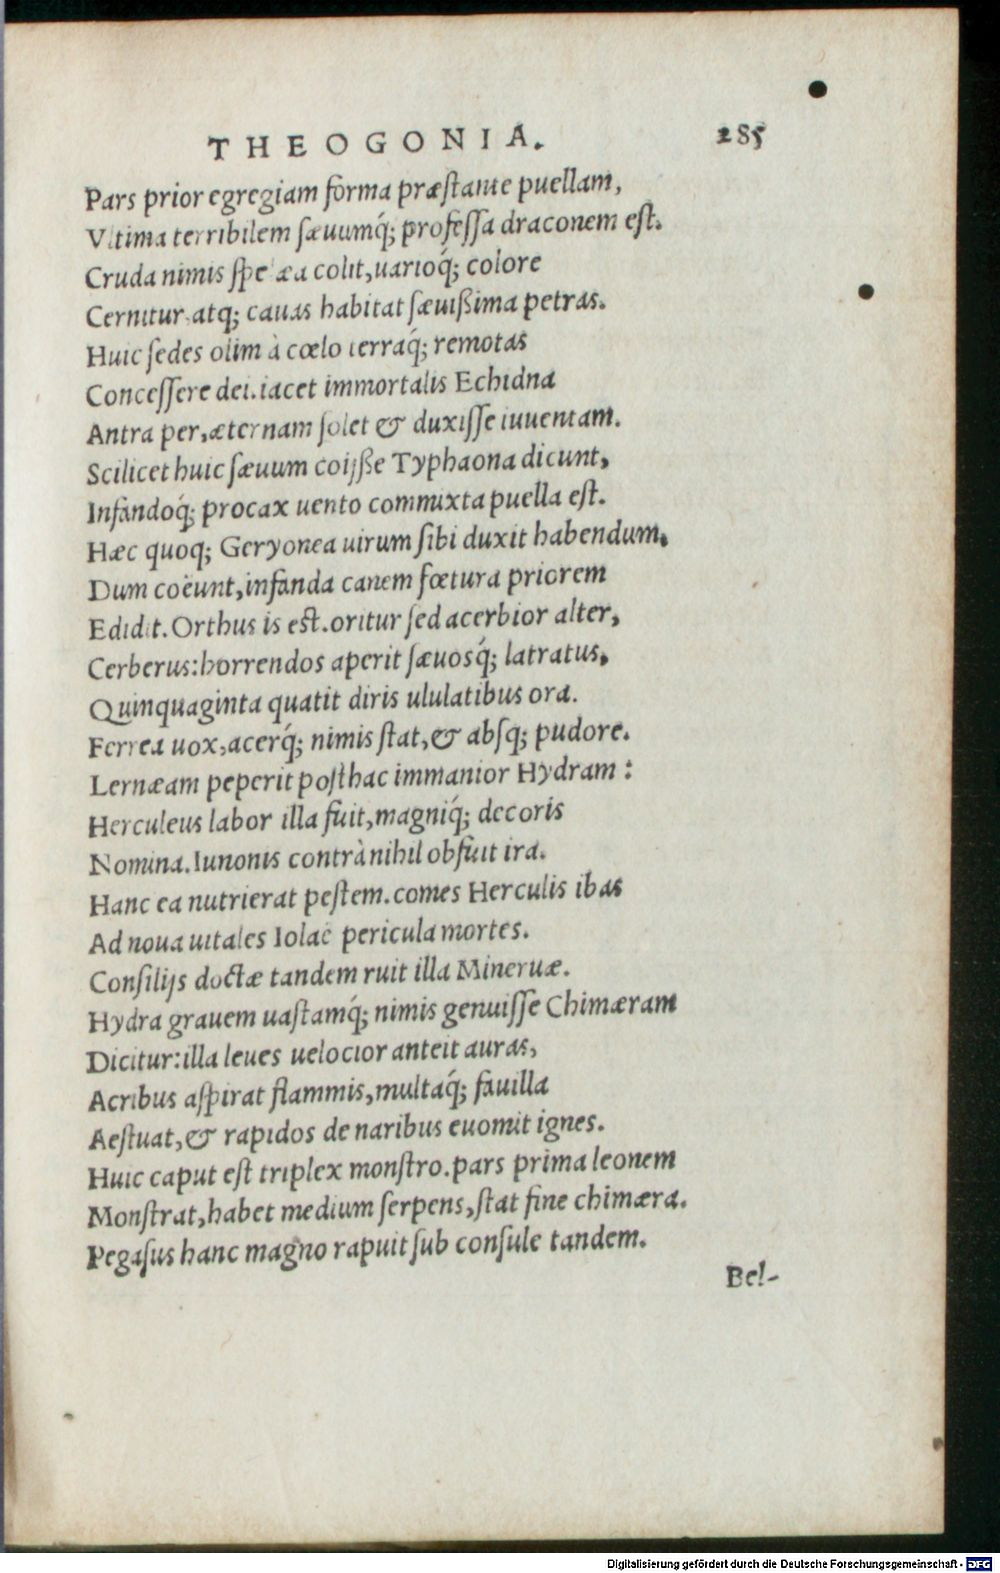 THEOGONIA. 285
Pars prior egregiam forma præstante puellam,
Vltima terribilem sæuumq́; professa draconem est.
Cruda nimis spelæa colit, uarioq́; colore
Cernitur, atq; cauas habitat sæuißima petras.
Huic sedes olim à cœlo terraq́; remotas
Concessere dei. iacet immortalis Echidna
Antra per, æternam solet & duxisse iuuentam.
Scilicet huic sæuum coijße Typhaona dicunt,
Infandoq́; procax uento commixta puella est.
Hæc quoq; Geryonea uirum sibi duxit habendum.
Dum coëunt, infanda canem fœtura priorem
Edidit. Orthus is est. oritur sed acerbior alter,
Cerberus: horrendos aperit sæuosq́; latratus,
Quinquaginta quatit diris ululatibus ora.
Ferrea uox, acerq́; nimis stat, & absq; pudore.
Lernæam peperit posthac immanior Hydram:
Herculeus labor illa fuit, magniq́; decoris
Nomina. Iunonis contrà nihil obfuit ira.
Hanc ea nutrierat pestem. comes Herculis ibas
Ad noua uitales Iolaë pericula mortes.
Consilijs doctæ tandem ruit illa Mineruæ.
Hydra grauem uastamq́; nimis genuisse Chimæram
Dicitur: illa leues uelocior anteit auras,
Acribus aspirat flammis, multaq́; fauilla
Aestuat, & rapidos de naribus euomit ignes.
Huic caput est triplex monstro. pars prima leonem
Monstrat, habet medium serpens, stat fine chimæra.
Pegasus hanc magno rapuit sub consule tandem.
Bel-
Digitalisierung gefördert durch die Deutsche Forschungsgemeinschaft - DFG